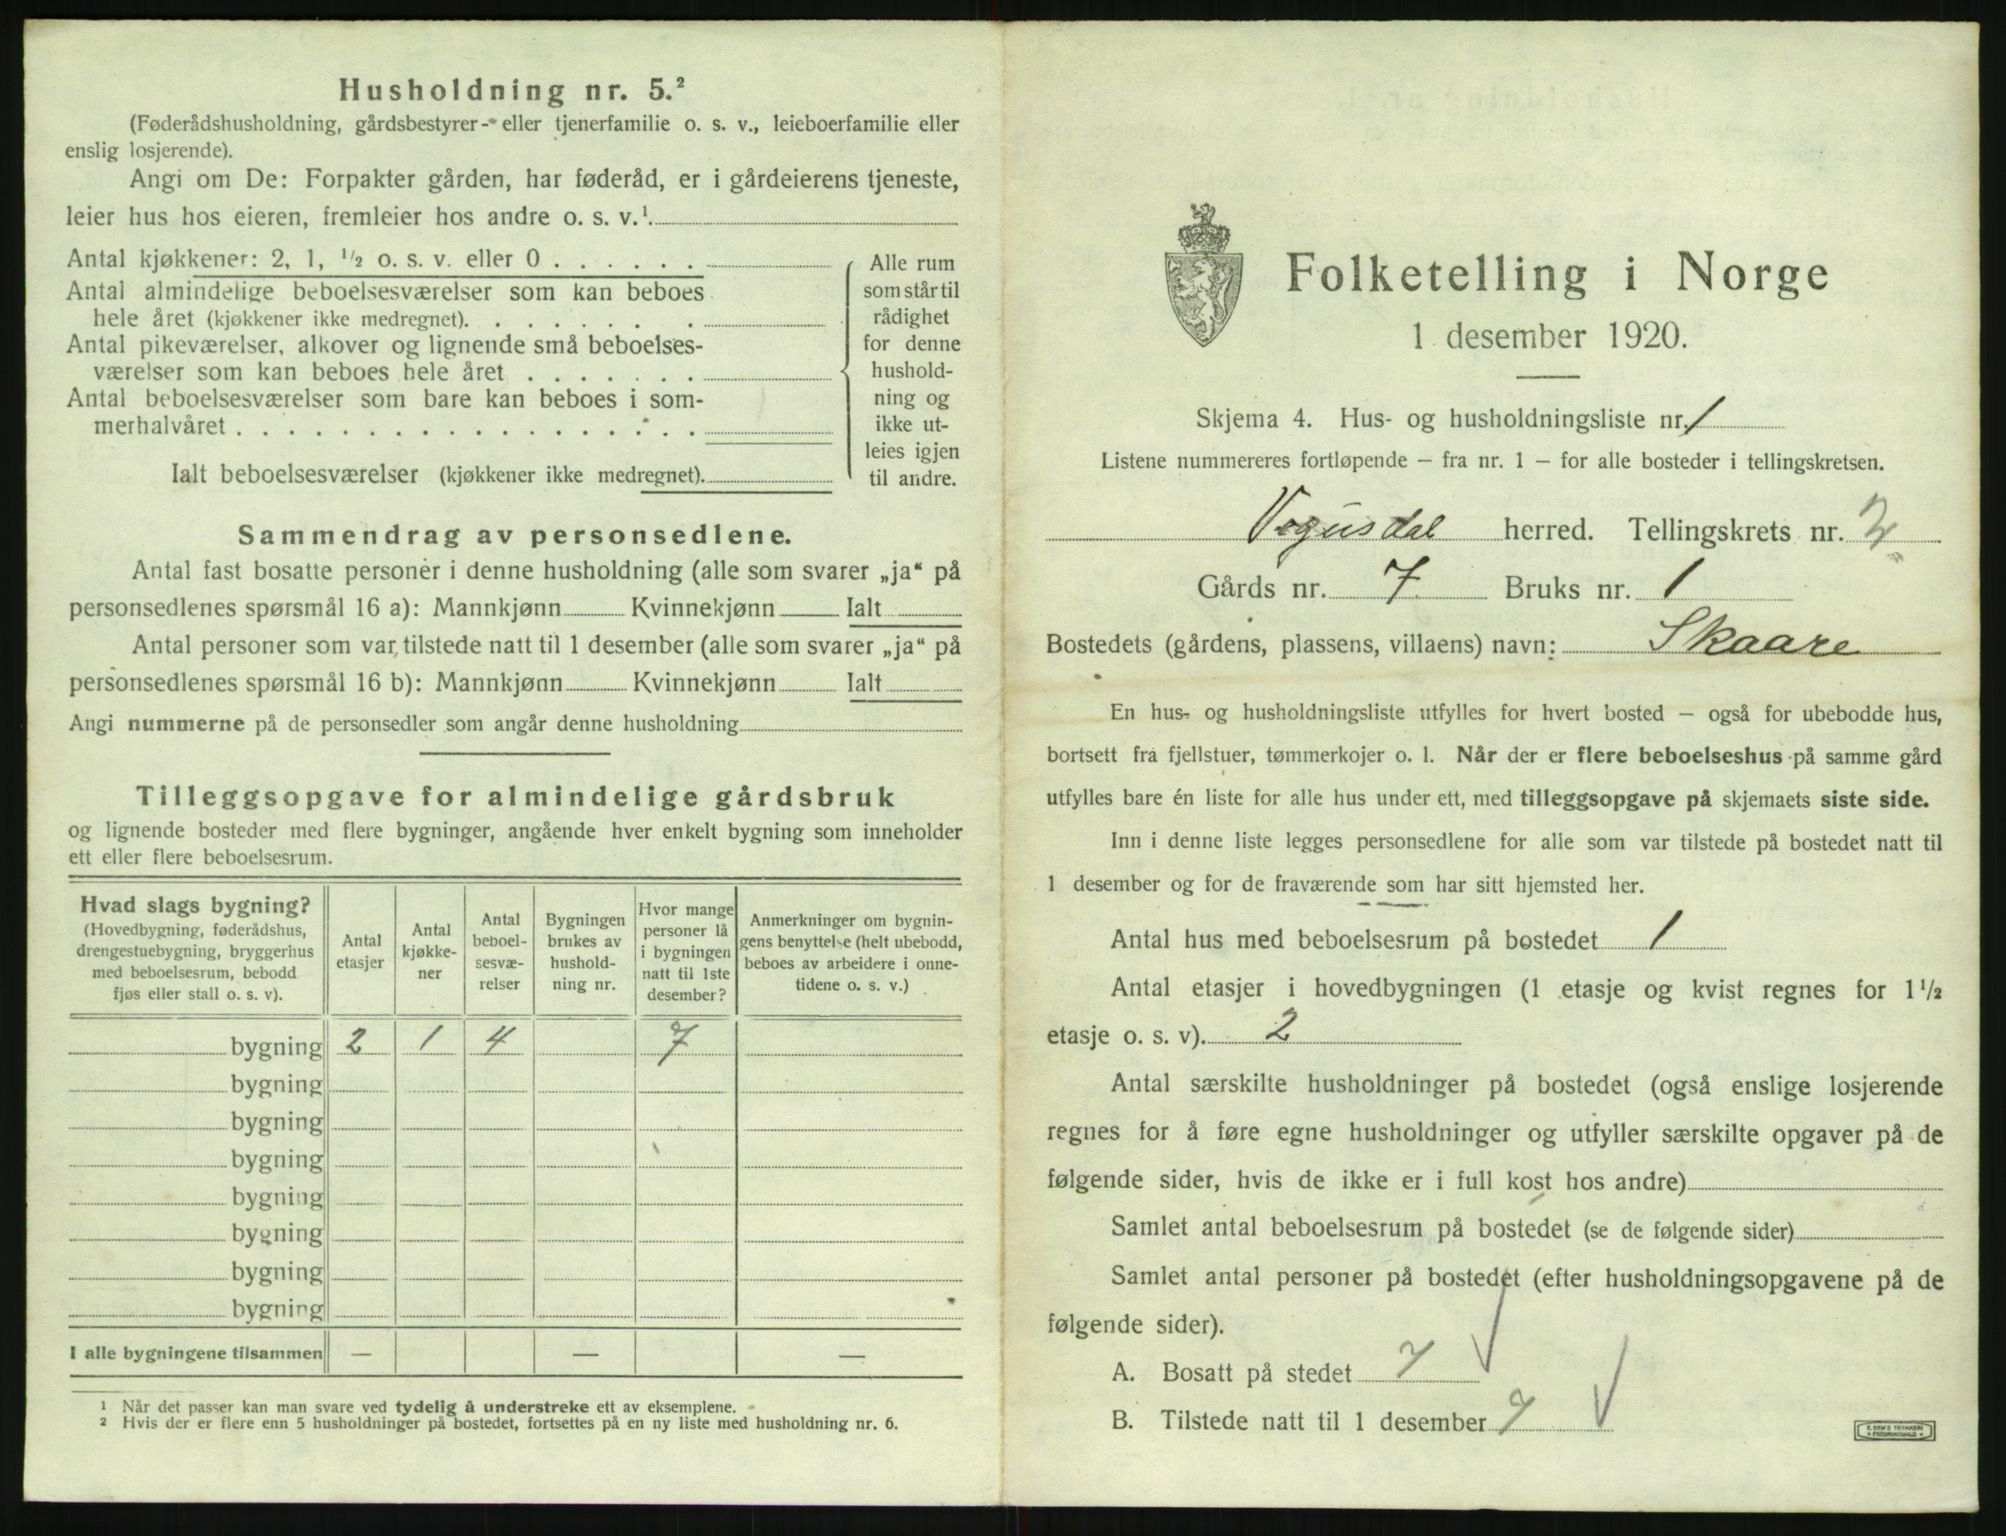 Husholdning nr. 5.²
(Føderådshusholdning, gårdsbestyrer- eller tjenerfamilie o. s. v., leieboerfamilie eller
enslig losjerende).
Angi om De: Forpakter gården, har føderåd, er i gårdeierens tjeneste,
leier hus hos eieren, fremleier hos andre o. s. v.¹
Antal kjøkkener: 2, 1, ½ o. s. v. eller 0 . . . . . .
Antal almindelige beboelsesværelser som kan beboes
hele året (kjøkkener ikke medregnet). . . . . . . .
Antal pikeværelser, alkover og lignende små beboelses-
værelser som kan beboes hele året . . . . . . .
Antal beboelsesværelser som bare kan beboes i som-
merhalvåret . . . . . . . . . . . . . . . . . .
Ialt beboelsesværelser (kjøkkener ikke medregnet).
Alle rum
som står til
rådighet
for denne
hushold-
ning og
ikke ut-
leies igjen
til andre.
Sammendrag av personsedlene.
Antal fast bosatte personer i denne husholdning (alle som svarer „ja“ på
personsedlenes spørsmål 16 a): Mannkjønn Kvinnekjønn Ialt
Antal personer som var tilstede natt til 1 desember (alle som svarer „ja“ på
personsedlenes spørsmål 16 b): Mannkjønn Kvinnekjønn Ialt
Angi nummerne på de personsedler som angår denne husholdning
Tilleggsopgave for almindelige gårdsbruk
og lignende bosteder med flere bygninger, angående hver enkelt bygning som inneholder
ett eller flere beboelsesrum.
Hvad slags bygning?
(Hovedbygning, føderådshus,
drengestuebygning, bryggerhus
med beboelsesrum, bebodd
fjøs eller stall o. s. v).
Antal
etasjer
Antal
kjøkke-
ner
Antal
beboel-
sesvæ-
relser
Bygningen
brukes av
hushold-
ning nr.
Hvor mange
personer lå
i bygningen
natt til 1ste
desember?
Anmerkninger om bygnin-
gens benyttelse (helt ubebodd,
beboes av arbeidere i onne-
tidene o. s. v.)
bygning 2 1 4 7
bygning
bygning
bygning
bygning
bygning
bygning
bygning
I alle bygningene tilsammen — — —
¹ Når det passer kan man svare ved tydelig å understreke ett av eksemplene.
² Hvis der er flere enn 5 husholdninger på bostedet, fortsettes på en ny liste med husholdning nr. 6.
Folketelling i Norge
1 desember 1920.
Skjema 4. Hus- og husholdningsliste nr. 1
Listene nummereres fortløpende — fra nr. 1 — for alle bosteder i tellingskretsen.
Vegusdal herred. Tellingskrets nr. 2
Gårds nr. 7 Bruks nr. 1
Bostedets (gårdens, plassens, villaens) navn: Skaare
En hus- og husholdningsliste utfylles for hvert bosted — også for ubebodde hus,
bortsett fra fjellstuer, tømmerkojer o. l. Når der er flere beboelseshus på samme gård
utfylles bare én liste for alle hus under ett, med tilleggsopgave på skjemaets siste side.
Inn i denne liste legges personsedlene for alle som var tilstede på bostedet natt til
1 desember og for de fraværende som har sitt hjemsted her.
Antal hus med beboelsesrum på bostedet 1
Antal etasjer i hovedbygningen (1 etasje og kvist regnes for 1½
etasje o. s. v). 2
Antal særskilte husholdninger på bostedet (også enslige losjerende
regnes for å føre egne husholdninger og utfyller særskilte opgaver på de
følgende sider, hvis de ikke er i full kost hos andre)
Samlet antal beboelsesrum på bostedet (se de følgende sider)
Samlet antal personer på bostedet (efter husholdningsopgavene på de
følgende sider).
A. Bosatt på stedet 7
B. Tilstede natt til 1 desember 7